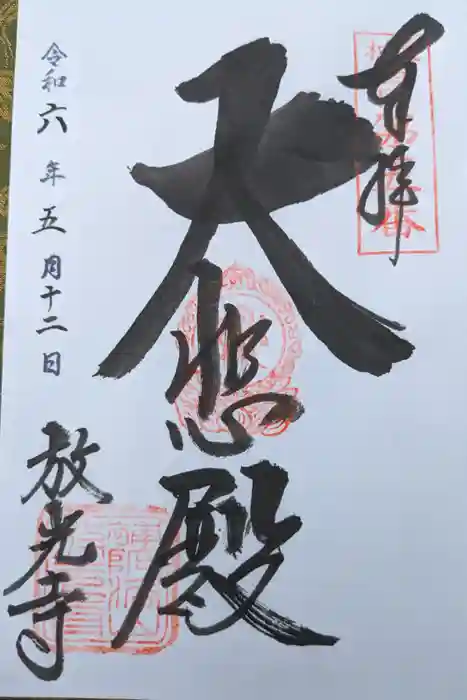 奉拝
大悲殿
放光寺
令和六年五月十二日